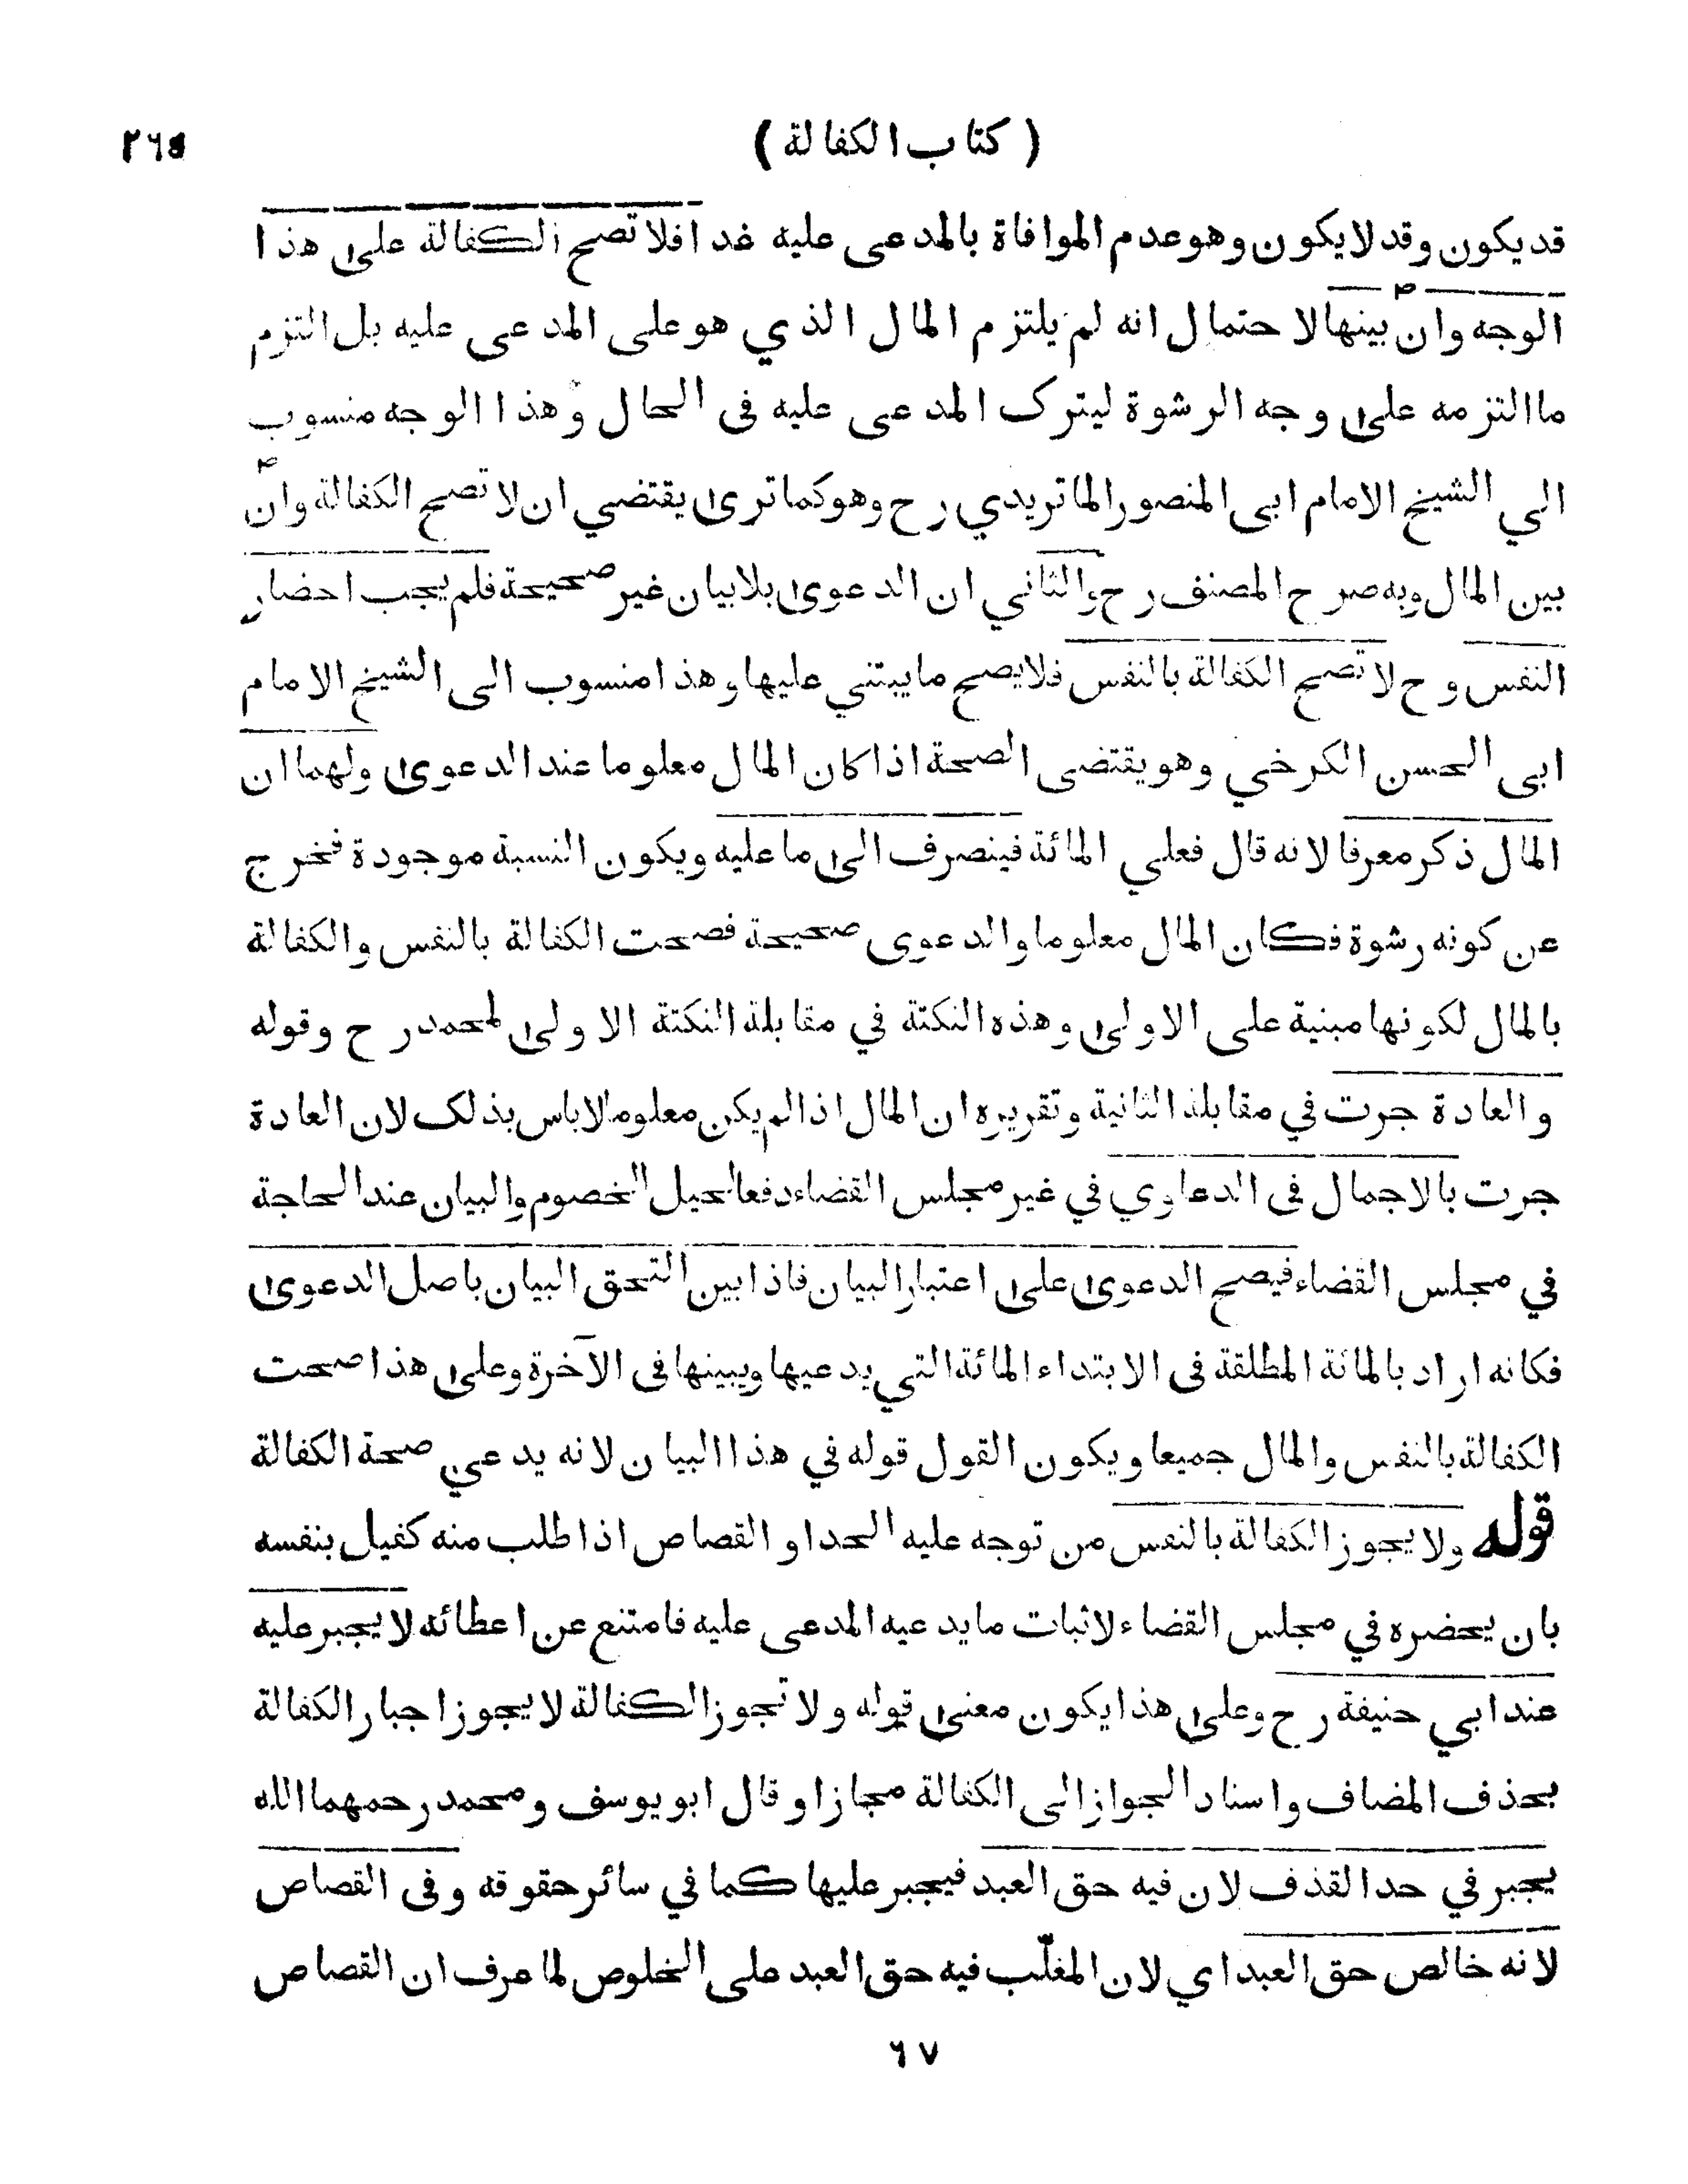 ( كتاب الكفالة )
٢٦٥
قد يكون وقد لا يكون وهو عدم الموافاة بالمدعى عليه غدا فلا تصح الكفالة على هذا
الوجه وان بينها لاحتمال انه لم يلتزم المال الذي هو على المدعى عليه بل التزم
ما التزمه على وجه الرشوة ليترك المدعى عليه فى الحال وهذا الوجه منسوب
الي الشيخ الامام ابى المنصور الماتريدي رح وهو كما ترى يقتضي ان لا تصح الكفالة وان
بين المال وبه صرح المصنف رح والثاني ان الدعوى بلا بيان غير صحيحة فلم يجب احضار
النفس وح لا تصح الكفالة بالنفس فلا يصح ما يبتني عليها وهذا منسوب الى الشيخ الامام
ابى الحسن الكرخي وهو يقتضى الصحة اذا كان المال معلوما عند الدعوى ولهما ان
المال ذكر معرفا لانه قال فعلي المائة فينصرف الى ما عليه ويكون النسبة موجودة فخرج
عن كونه رشوة فكان المال معلوما والدعوى صحيحة فصحت الكفالة بالنفس والكفالة
بالمال لكونها مبنية على الاولى وهذه النكتة في مقابلة النكتة الاولى لمحمد رح وقوله
والعادة جرت في مقابلة الثانية وتقريره ان المال اذا لم يكن معلوما لا باس بذلك لان العادة
جرت بالاجمال فى الدعاوي في غير مجلس القضاء دفعا لحيل الخصوم والبيان عند الحاجة
في مجلس القضاء فيصح الدعوى على اعتبار البيان فاذا بين التحق البيان باصل الدعوى
فكانه اراد بالمائة المطلقة فى الابتداء المائة التي يدعيها ويبينها فى الآخرة وعلى هذا صحت
الكفالة بالنفس والمال جميعا ويكون القول قوله في هذا البيان لانه يدعي صحة الكفالة
قوله ولا يجوز الكفالة بالنفس من توجه عليه الحد او القصاص اذا طلب منه كفيل بنفسه
بان يحضره في مجلس القضاء لاثبات ما يدعيه المدعى عليه فامتنع عن اعطائه لا يجبر عليه
عند ابي حنيفة رح وعلى هذا يكون معنى قوله ولا تجوز الكفالة لا يجوز اجبار الكفالة
بحذف المضاف واسناد الجواز الى الكفالة مجازا وقال ابو يوسف ومحمد رحمهما الله
يجبر في حد القذف لان فيه حق العبد فيجبر عليها كما في سائر حقوقه وفى القصاص
لانه خالص حق العبد اي لان المغلّب فيه حق العبد على الخلوص لما عرف ان القصاص
٦٧